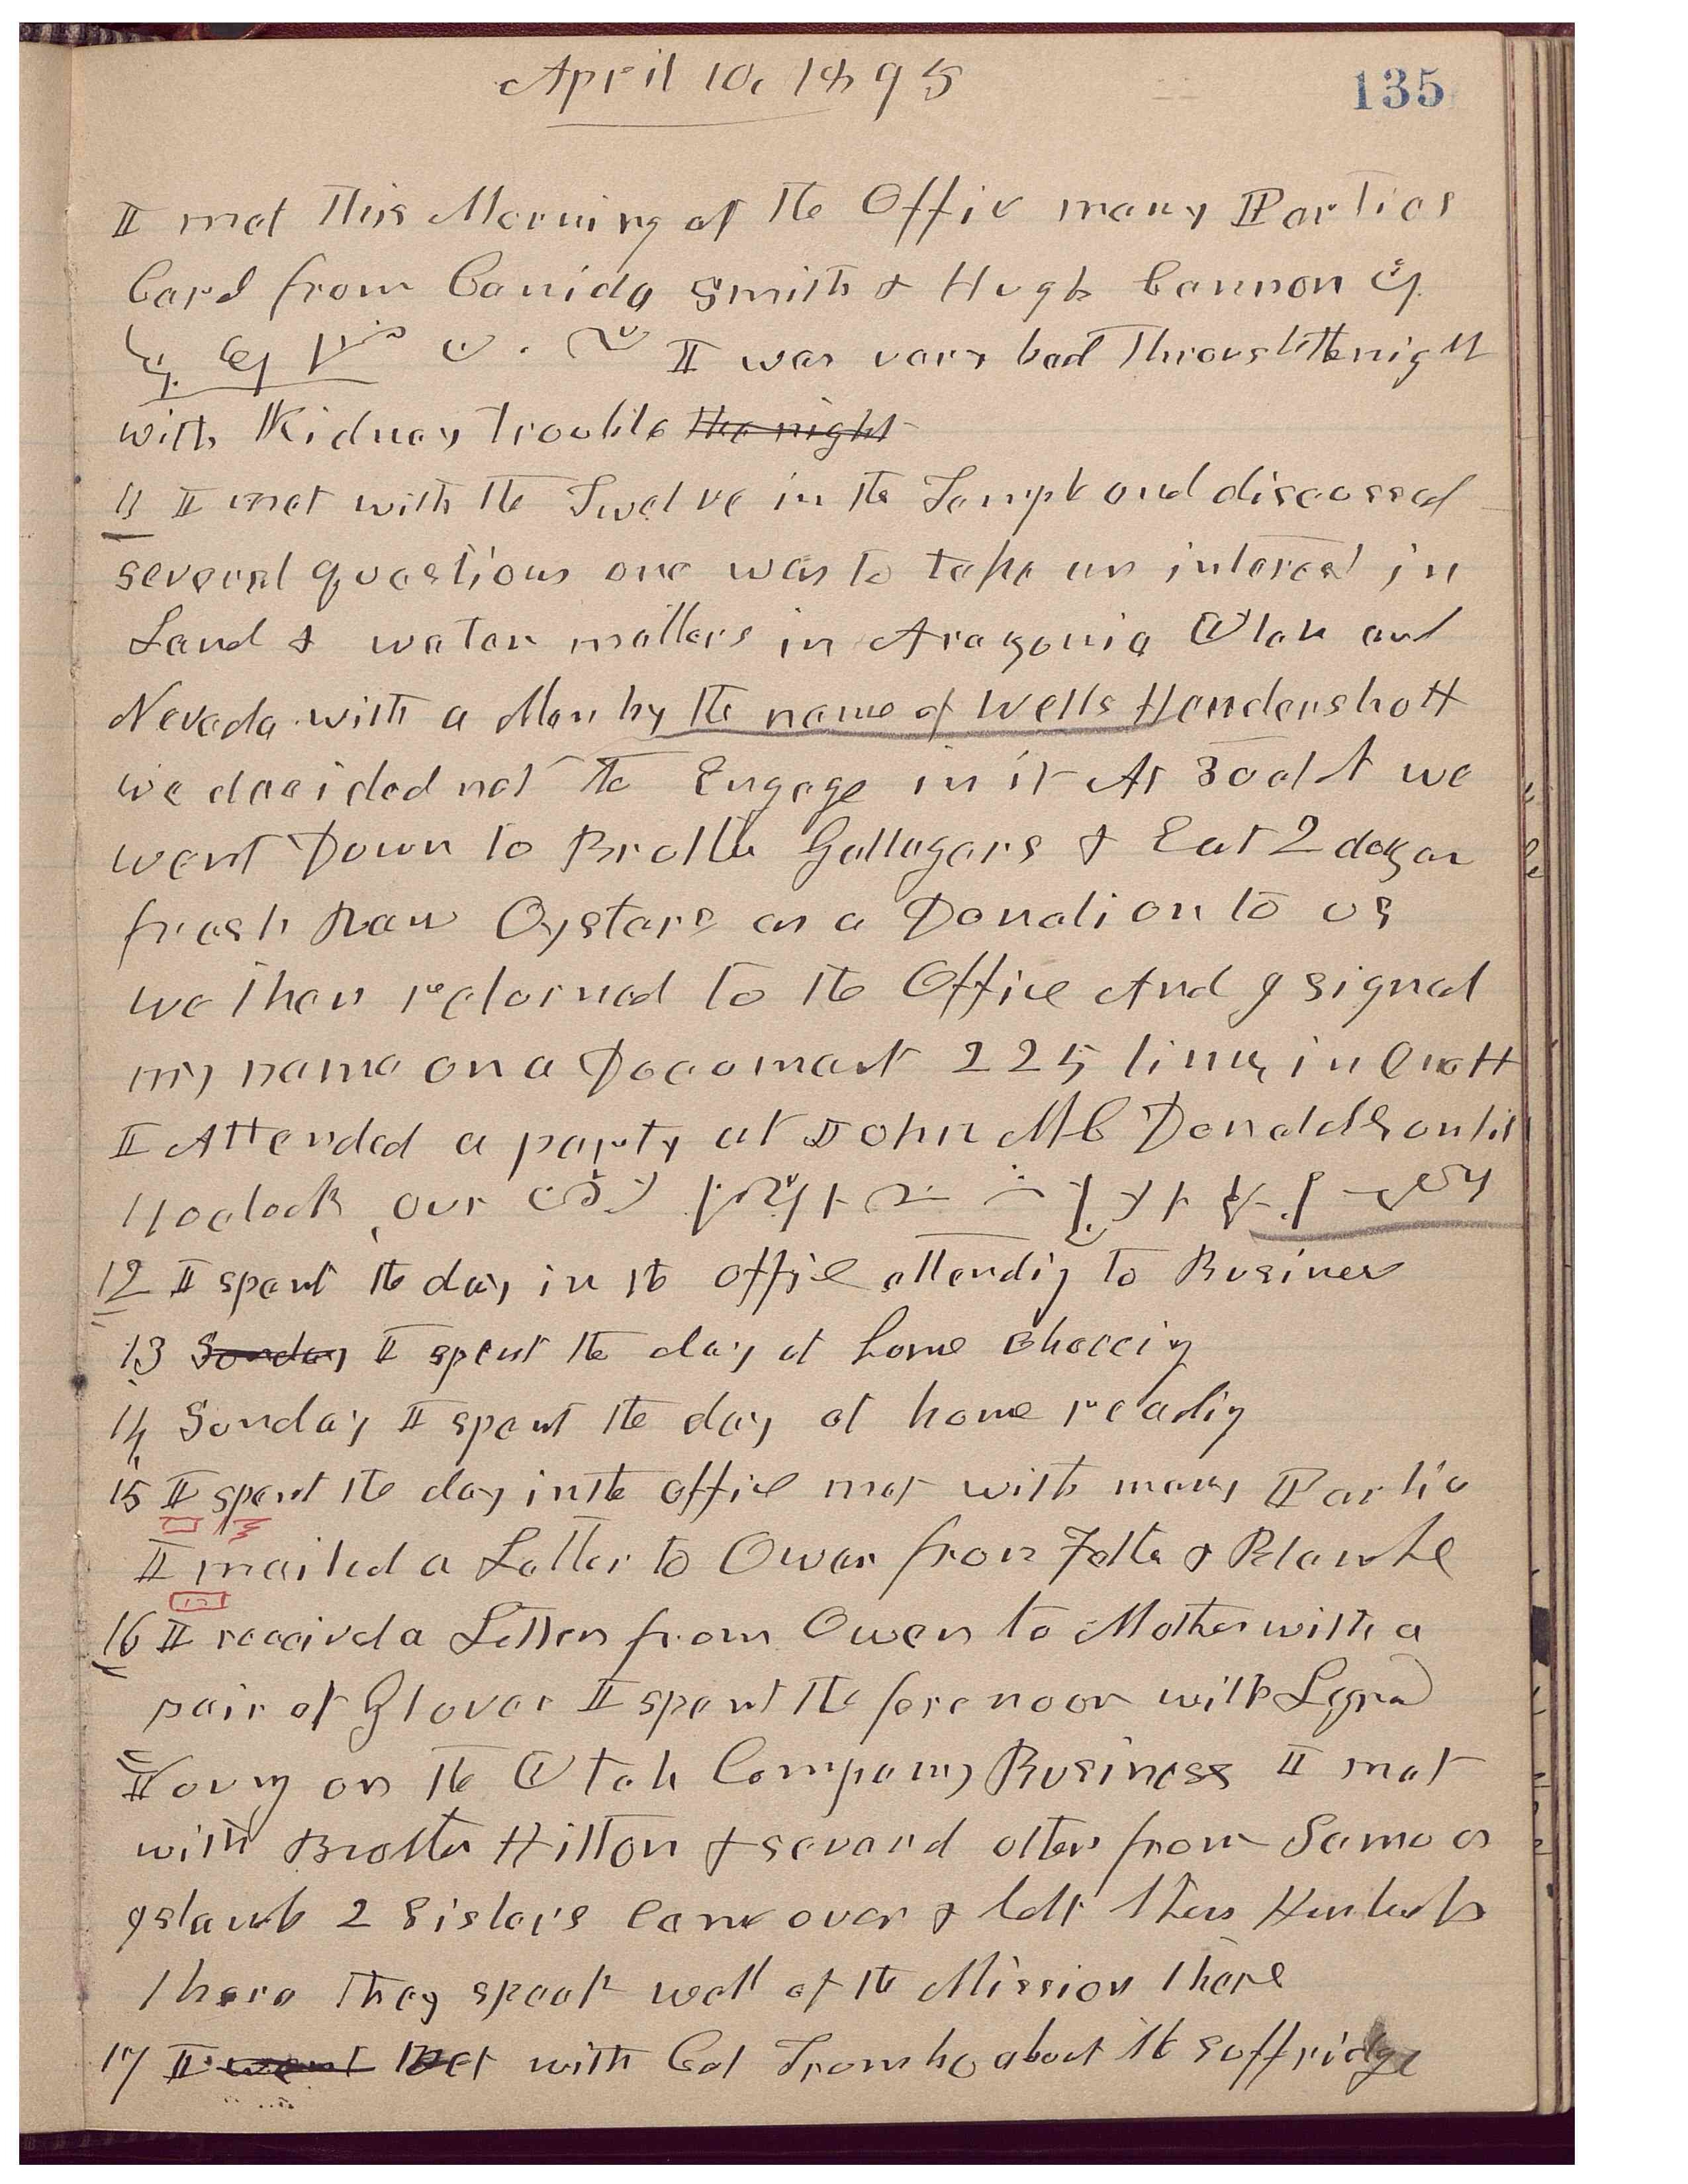 April 10, 1895
135
II met This Morning at the Office many Parties
Card from Canida Smith & Hugh Cannon
II was vary bad Through the night
with Kidney trouble the night
11 II met with the Twelve in the Temple and discussed
several questions one was to take an interest in
Land & water matters in Aragonia Utah and
Nevada with a Man by the name of Wells Hendershott
we decided not to Engage in it At 3 oclok we
went Down to Brother Gallagars & Eat 2 dozen
fresh Raw Oysters as a Donation to us
we then returned to the Office And I signed
my name on a Document 225 times in
II Attended a party at John Mc Donalds untill
11 oclock our
12 II spent the day in the office attending to Business
13 Sunday II spent the day at home
14 Sunday II spent the day at home reading
15 II spent the day in the office met with many Partie
II mailed a Letter to Owen from &
16 II receivd a Letter from Owen to Mother with a
pair of Gloves II spent the forenoon with
Young on the Utah Company Business II met
with Brother Hilton & several others from Samoa
Islands 2 Sisters came over & left their Husbands
there They speak well of the Mission there
17 II went Met with Col Trombo about the suffridge